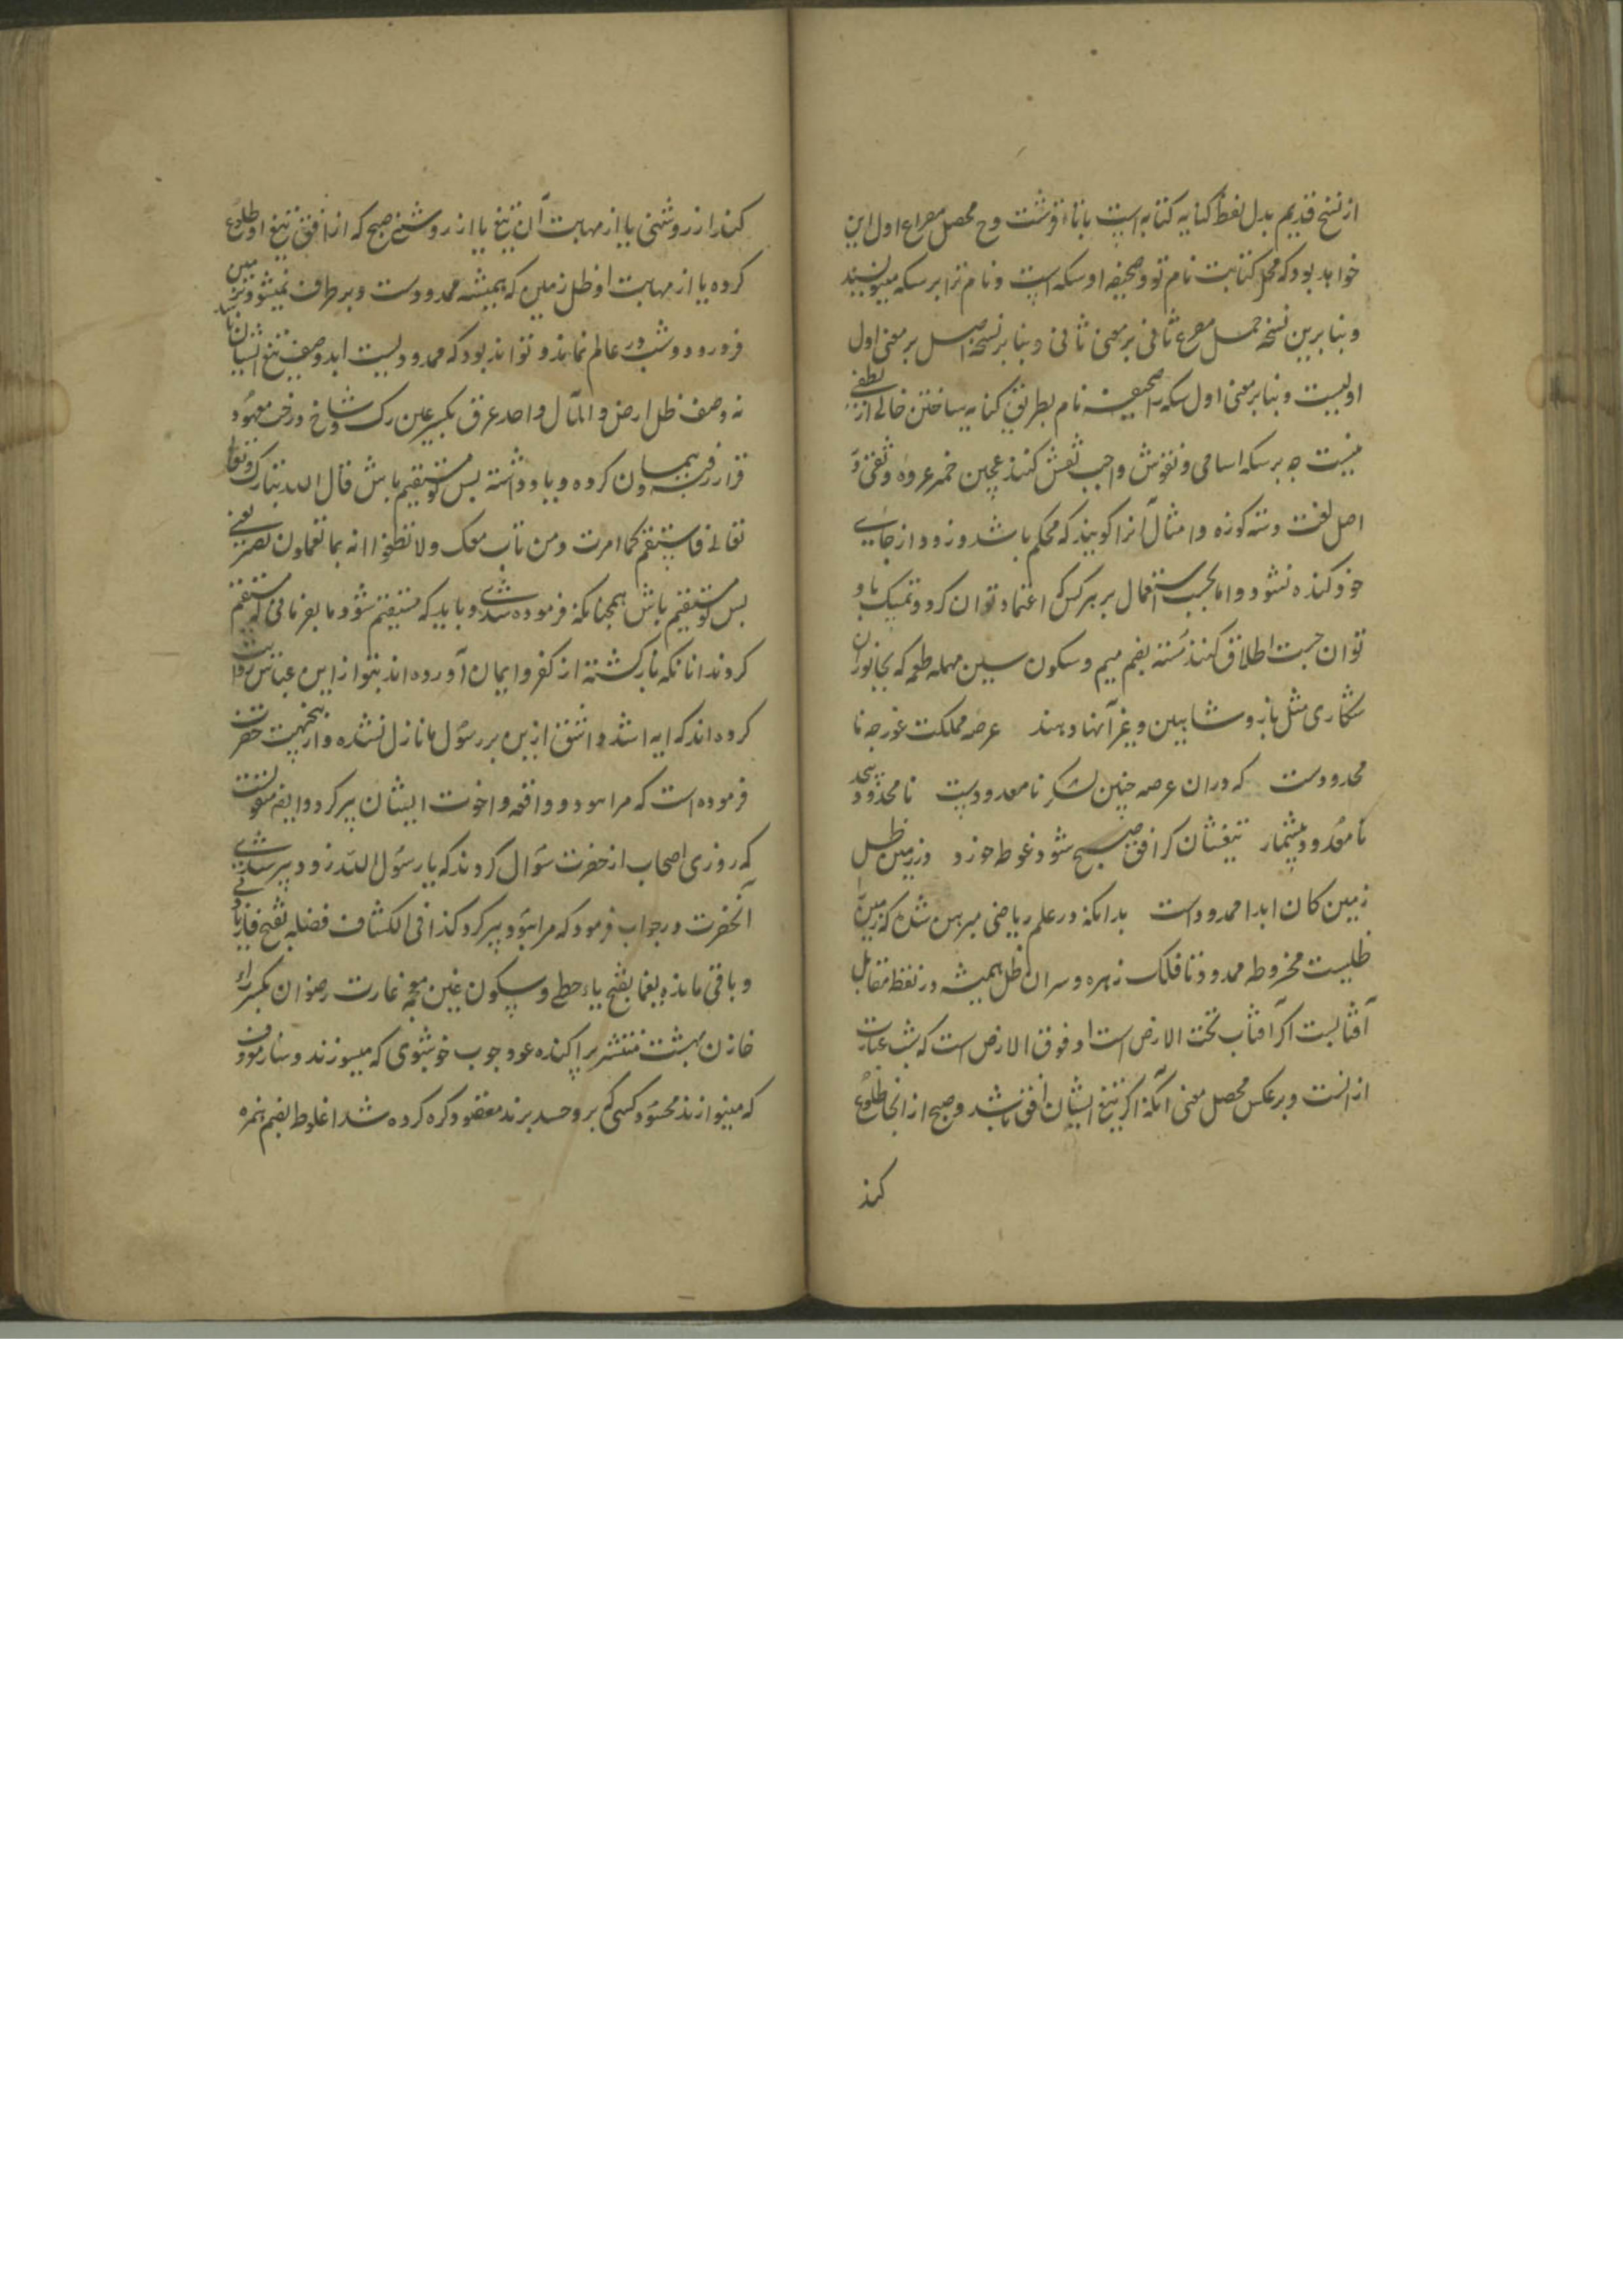 از نسخ قدیم بدل لفظ کنایه کتابه است بتاء قرشت وح محصل مصراع اول این
خواهد بود که محل کتابت نام تو و صحیفه او سکه است و نام ترا بر سکه مینویسند
و بنابرین نسخه حمل مصرع ثانی بر معنی ثانی و بنابر نسخه اصل بر معنی اول
اولیست و بنابر معنی اول سکه را صحیفه نام بطریق کنایه ساختن خالی از لطفی
نیست چه بر سکه اسامی و نقوش واجب نقش کنند عجین خمیر عروه وثقی در
اصل لغت دسته کوزه و امثال آنرا کویند که محکم باشد و زود از جای
خود کنده نشود و اما بحسب استعمال بر هر کس که اعتماد توان کرد و تمسک باو
توان جست اطلاق کنند مسته بضم میم و سکون سین مهمله طعمه که بجانوران
شکاری مثل باز و شاهین و غیر آنها دهند عرصه مملکت غور چه نا
محدودست که دران عرصه چنین لشکر نامعدودست نامحدود بیحد
نامعدود بیشمار تیغشان کر افق صبح شود غوطه خورد در زمین ظل
زمین کان ابدا ممدود است بدانکه در علم ریاضی مبرهن شده که زمین را
ظلیست مخروطه ممدود تا فلک زهره و سر ان ظل همیشه در نقطه مقابل
آفتابست اکر آفتاب تحت الارض است او فوق الارض است که شب عبارت
از انست و برعکس محصل معنی آنکه اکر تیغ ایشان افق باشد و صبح از انجا طلوع
کند
کند از روشنی یا از مهابت آن تیغ یا از روشنی صبح که از افق تیغ او طلوع
کرده یا از مهابت او ظل زمین که همیشه ممدودست و برطرف نمیشود بزمین
فرو رود و شب در عالم نماند و تواند بود که ممدودیست ابد وصف تیغ ایشان باشد
نه وصف ظل ارض و المآل واحد عرق بکسر عین رک و شاخ درخت معهود
قرار رفته پیمان کرده و یاد داشته پس تو مستقیم باش قال الله تبارک و تعالی
تعالی فاستقم کما امرت و من تاب معک ولا تطغوا انه بما تعملون بصیر یعنی
پس تو مستقیم باش همچنانکه فرموده شدی و باید که مستقیم شود ما بفرمانی که مستقیم
کردند انانکه بازکشته از کفر و ایمان آورده اند بتو از ابن عباس روایت
کرده اند که ایه اشد و اشق ازین بر رسول ما نازل نشده و ازینجهت حضرت
فرموده است که مرا هود و واقعه و اخوت ایشان پیر کرد و ایضا منقولست
که روزی اصحاب از حضرت سؤال کردند که یا رسول الله زود پیر شدی
آنحضرت در جواب فرمود که مرا هود پیر کرد کذا فی الکشاف فضله بفتح فا زیادتی
و باقی مانده یغما بفتح یاء حطی و سکون غین معجمه غارت رضوان بکسر راء
خازن بهشت منتشر پراکنده عود چوب خوشبوی که میسوزند و ساز معروف
که مینوازند محسود کسی که برو حسد برند معقود کره کرده شد اغلوطه بضم همزه